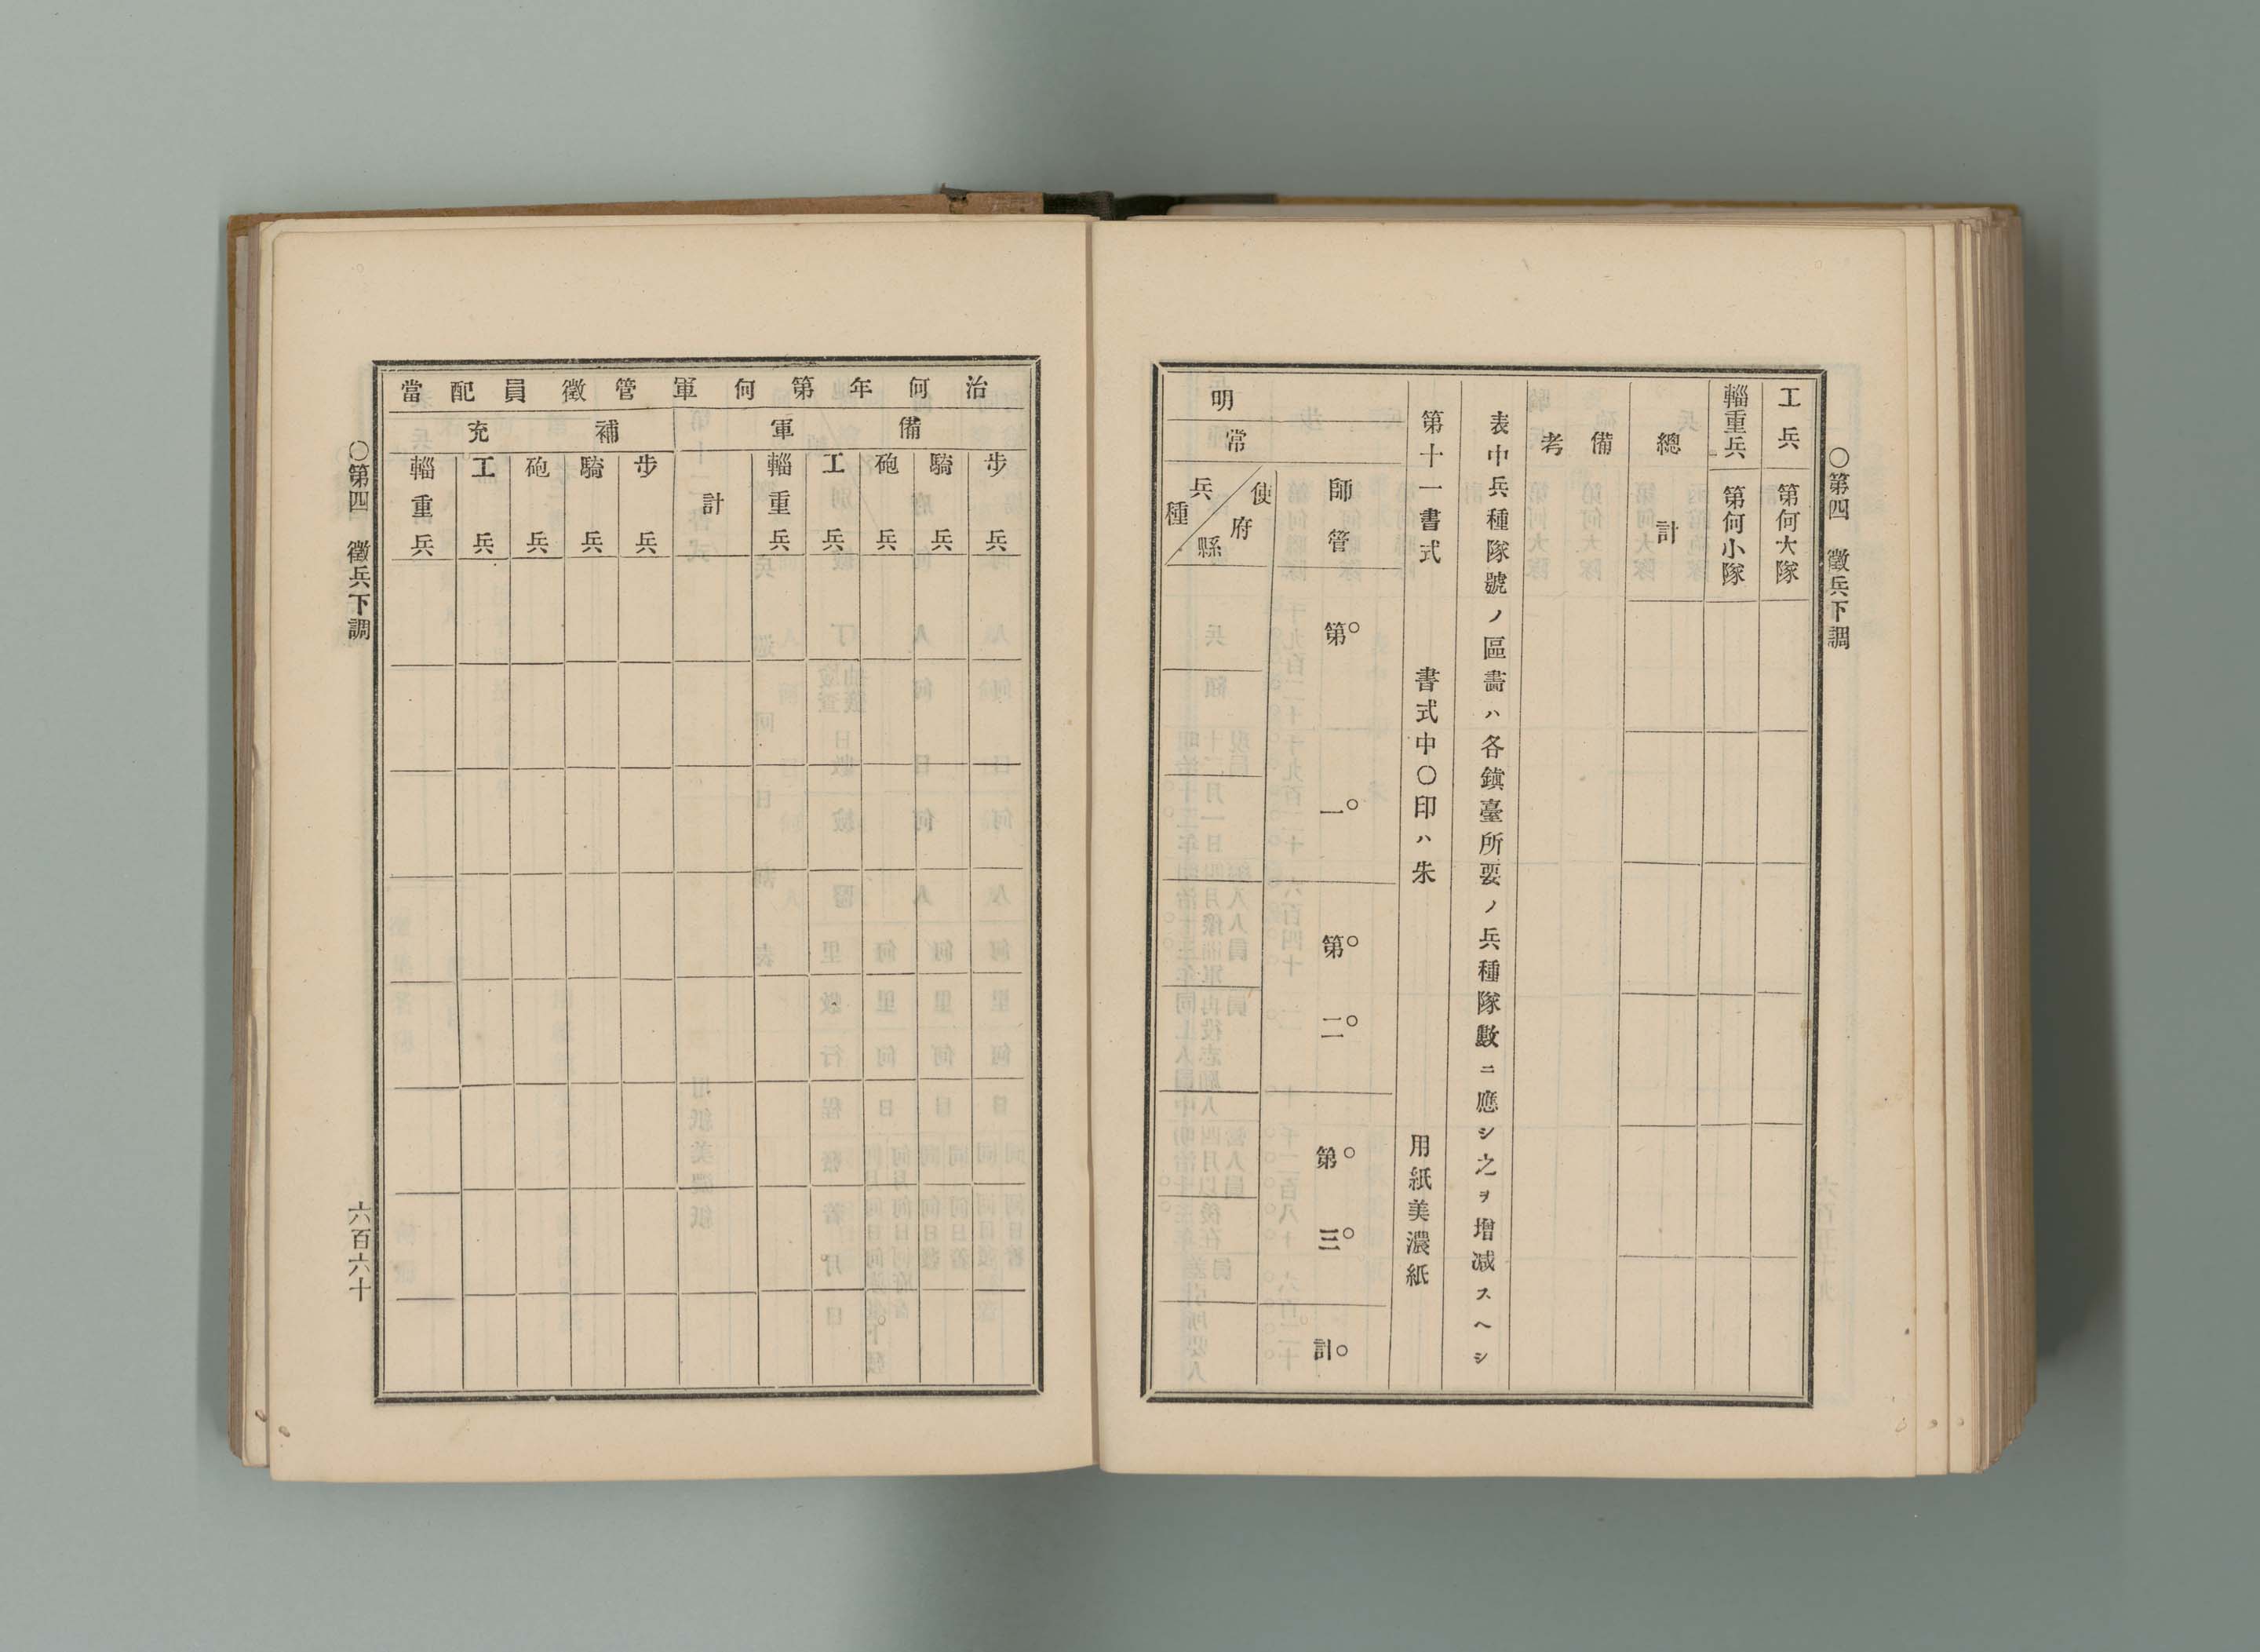 〇第四 徵兵下調
工兵 第何大隊
輜重兵 第何小隊
總計
備考
表中兵種隊號ノ區畵ハ各鎭臺所要ノ兵種隊數ニ應シ之ヲ增减スヘシ
第十一書式 書式中〇印ハ朱 用紙美濃紙
明
常
師管 第〇一〇 第〇二〇 第〇三〇 計〇
使府縣
兵種
治何年第何軍管徵員配當
備軍
步兵
騎兵
砲兵
工兵
輜重兵
計
補充
步兵
騎兵
砲兵
工兵
輜重兵
〇第四 徵兵下調
六百六十